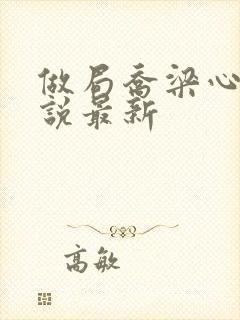 做局喬梁心
說最新
高敏